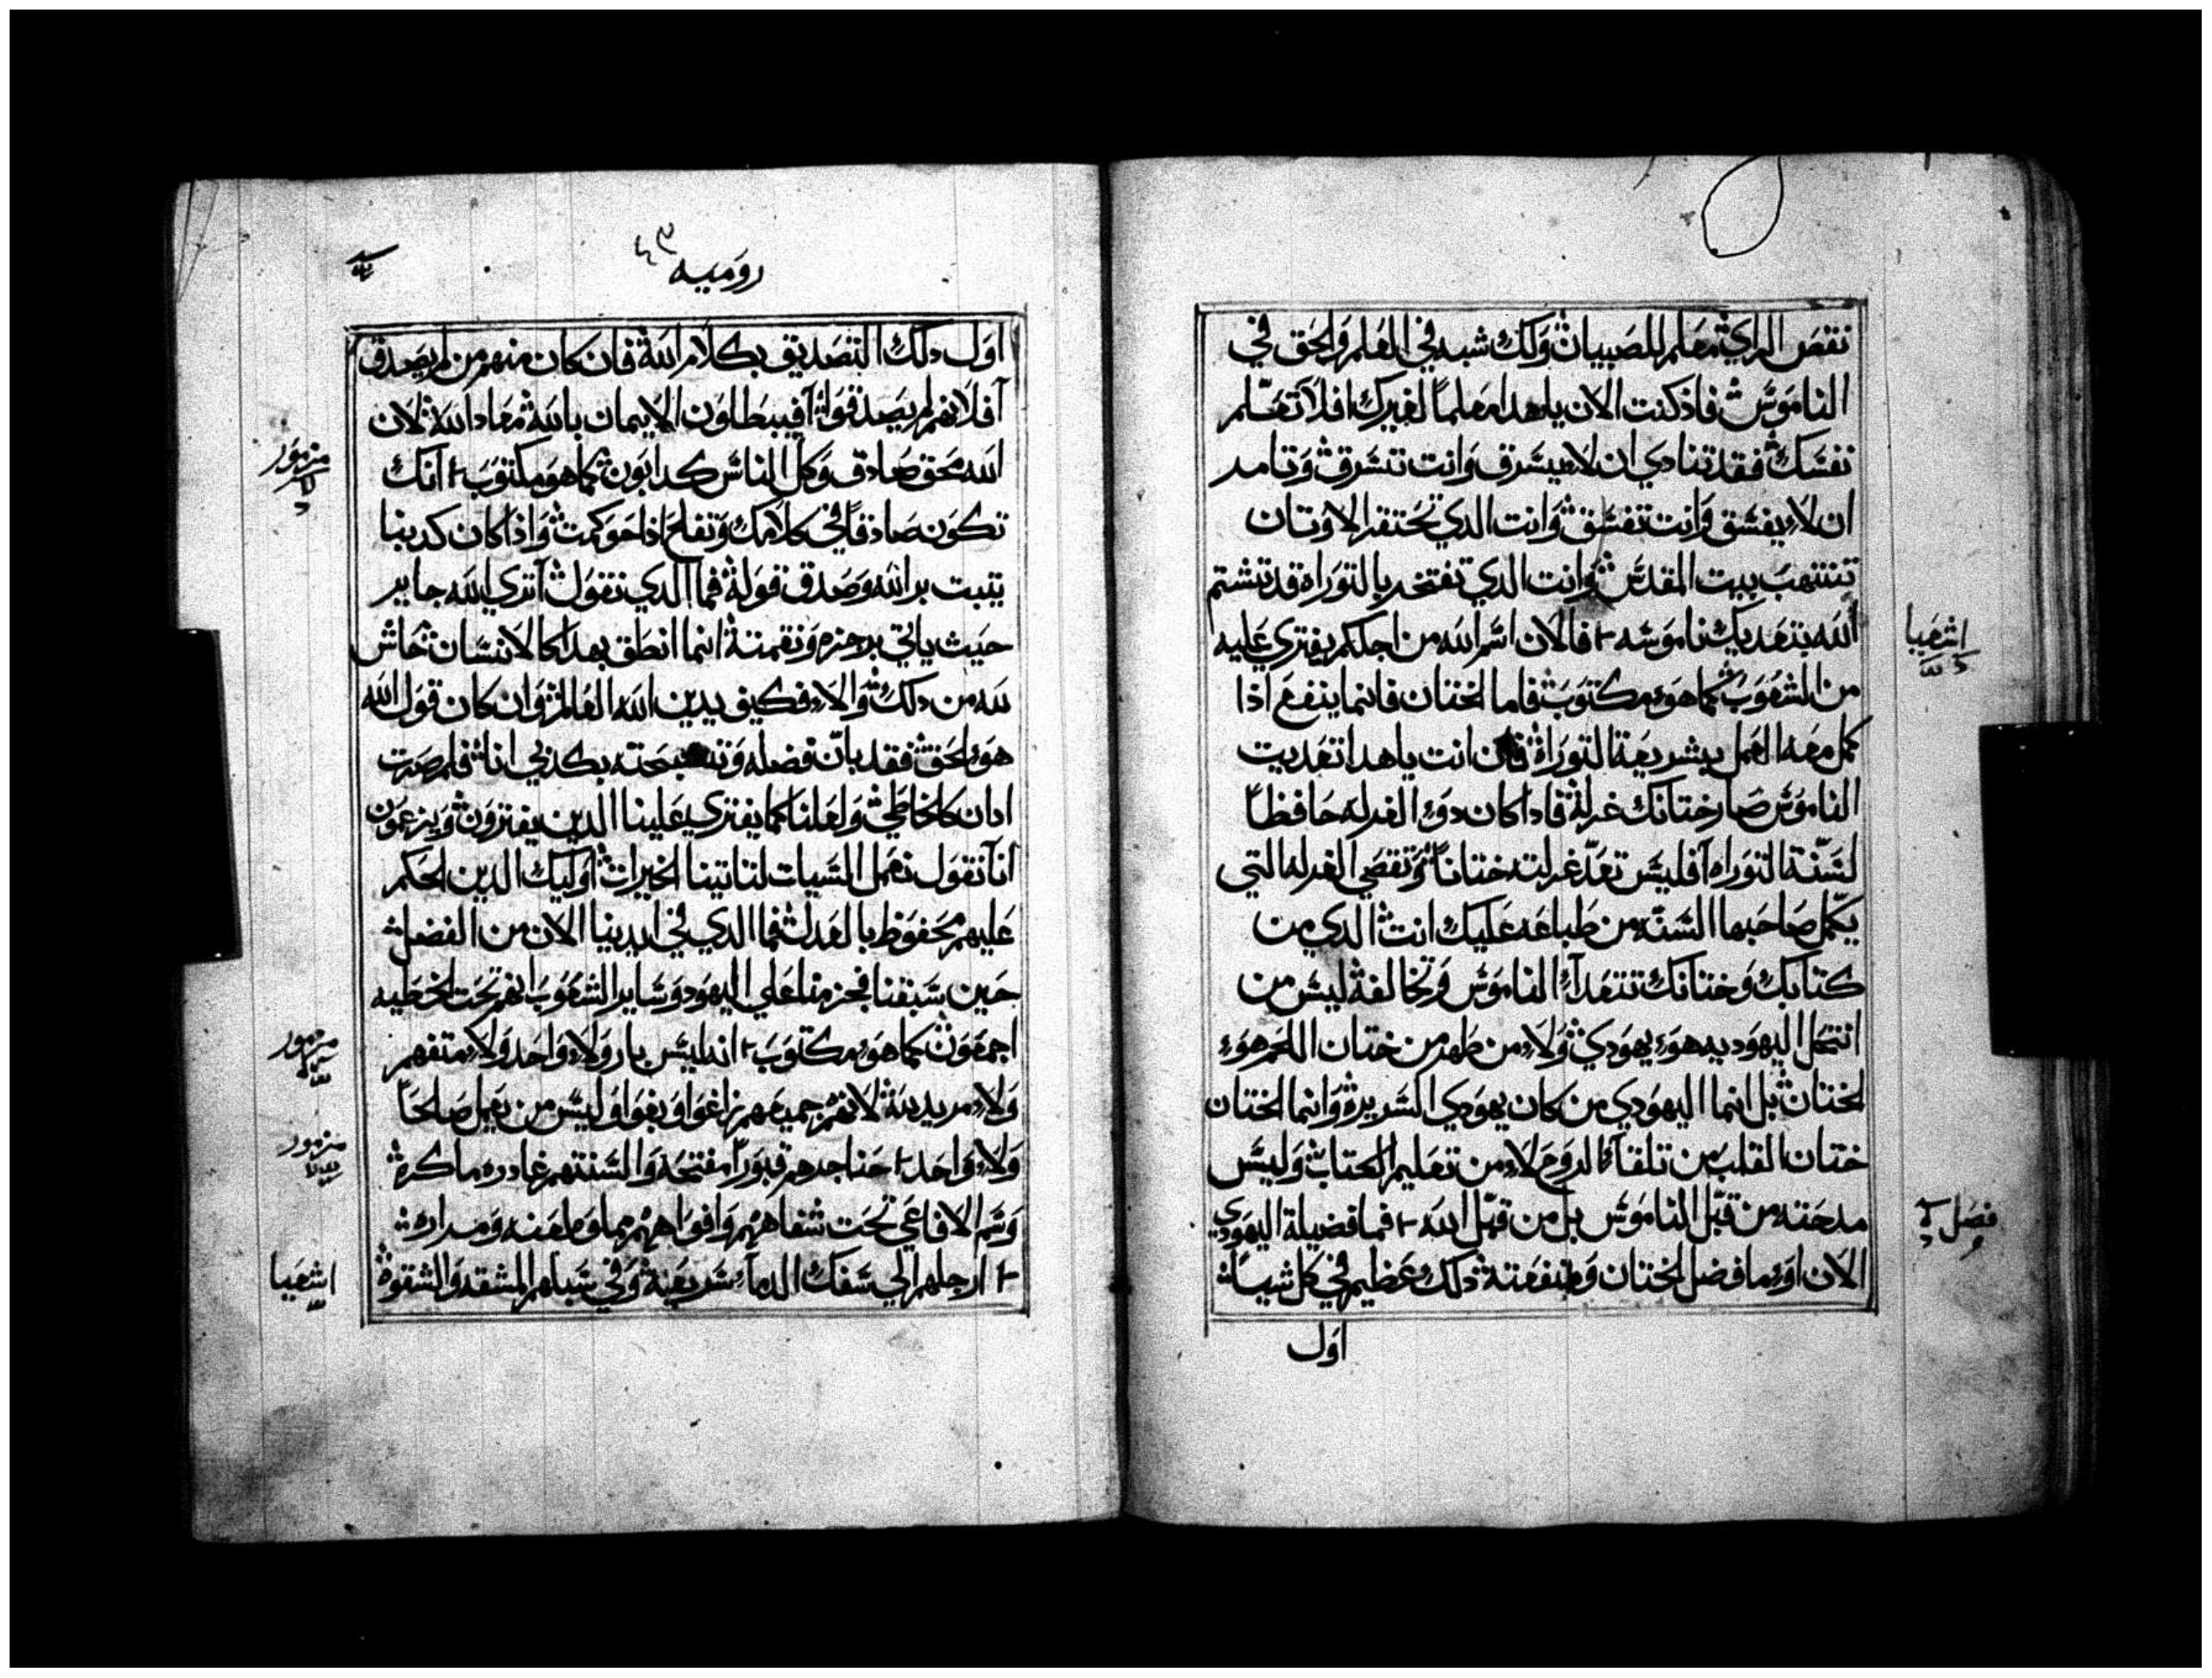 نقص الراي معلم للصبيان ولك شبه في العلم والحق في
الناموس فاذ كنت الان يا هدا معلما لغيرك افلا تعلم
نفسك فقد تنادي ان لا يسرق وانت تسرق وتامر
ان لا يفسق وانت تفسق وانت الدي تحتقر الاوتان
تنتهب بيت المقدس وانت الدي تفتخر بالتوراه قد تشتم
الله بتعديك ناموسه فالان اسم الله من اجلكم يفتري عليه
من الشعوب كما هو مكتوب فاما الختان فانما ينفع اذا
كمل معه العمل بشريعة التوراة فان انت يا هدا تعديت
الناموس صار ختانك غرلة فادا كان دو الغرله حافظا
لسنة التوراه افليس تعد غرلته ختانا وتقضي الغرله التي
يكمل صاحبها السنه من طباعه عليك انت الدي من
كتابك وختانك تتعدا الناموس وتخالفة ليس من
انتحل اليهوديه هو يهودي ولا من طهر من ختان اللحم هو
الختان بل انما اليهودي من كان يهودي السريرة وانما الختان
ختان القلب من تلقاء الروح لا من تعليم الكتاب وليس
مدحته من قبل الناموس بل من قبل الله فما فضيلة اليهودي
الان او ما فضل الختان ومنفعتة ذلك عظيم في كل شيا
اول
اشعيا
فصل
روميه
اول دلك التصديق بكلام الله فان كان منهم من لم يصدق
افلانهم لم يصدقوا افيبطلون الايمان بالله معاد الله لان
الله محق صادق وكل الناس كدابون كما هو مكتوب انك
تكون صادقا في كلامك وتفلح اذا حوكمت واذا كان كدبنا
يتبت بر الله وصدق قولة فما الدي نقول اتري الله جاير
حيث ياتي برجزه ونقمتة انما انطق بهدا كالانسان حاش
لله من دلك والا فكيف يدين الله العالم وان كان قول الله
هو الحق فقد بان فضله بكدبي انا فلم صرت
ادان كالخاطي ولعلنا كما يفتري علينا الدين يفترون ويزعمون
انا نقول نعمل السيات لتاتينا الخيرات اوليك الدين الحكم
عليهم محفوظ بالعدل فما الدي في ايدينا الان من الفضل
حين سبقنا فجزمنا علي اليهود وساير الشعوب انهم تحت الخطيه
اجمعون كما هو مكتوب انه ليس بار ولا واحد ولا متفهم
ولا مريد لانهم جميعهم زاغوا وبغوا وليس من يعمل صالحا
ولا واحد حناجرهم قبورا مفتحه والسنتهم غادره ماكرة
وسم الافاعي تحت شفاههم وافواههم مملوه لعنه ومراره
ارجلهم الي سفك الدماء سريعة وفي سبلهم المشقه والشقوة
مزمور
مزمور
مزمور
اشعيا